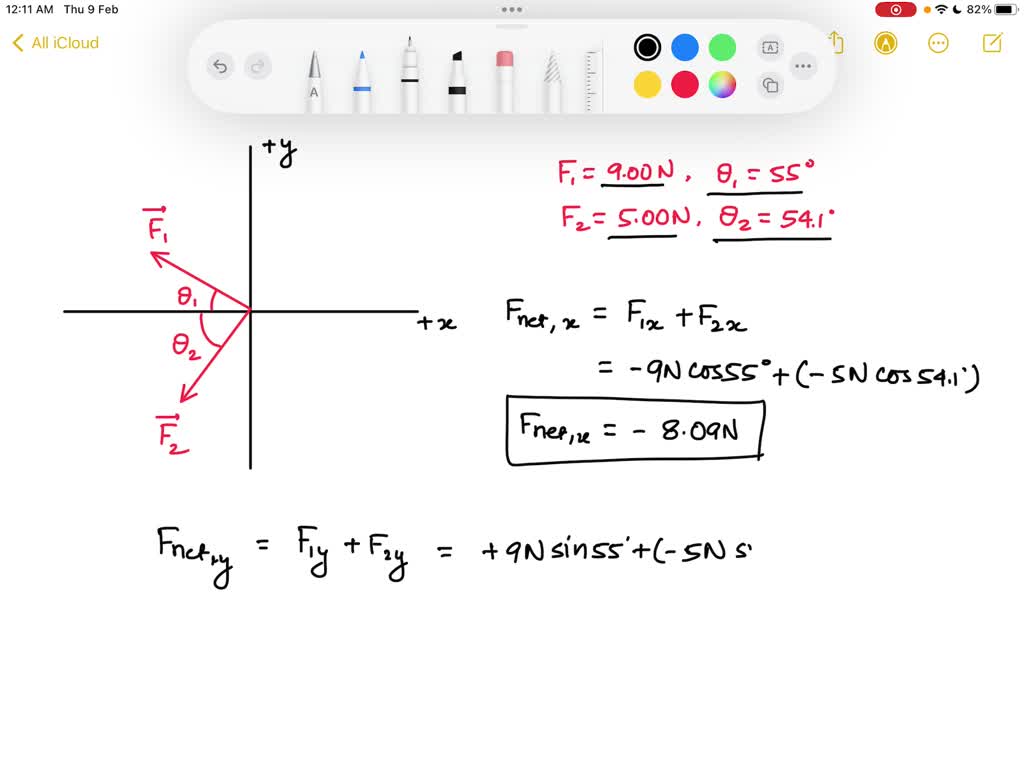 12:11 AM Thu 9 Feb
82%
All iCloud
A
A
A
+y
F₁ = 9.00N, θ₁ = 55°
F₂ = 5.00N, θ₂ = 54.1°
F₁
θ₁
+x
θ₂
F₂
Fnet,x = F₁x + F₂x
= -9N cos55° + (-5N cos 54.1°)
Fnet,x = - 8.09N
Fnet,y = F₁y + F₂y = +9N sin55° + (-5N s